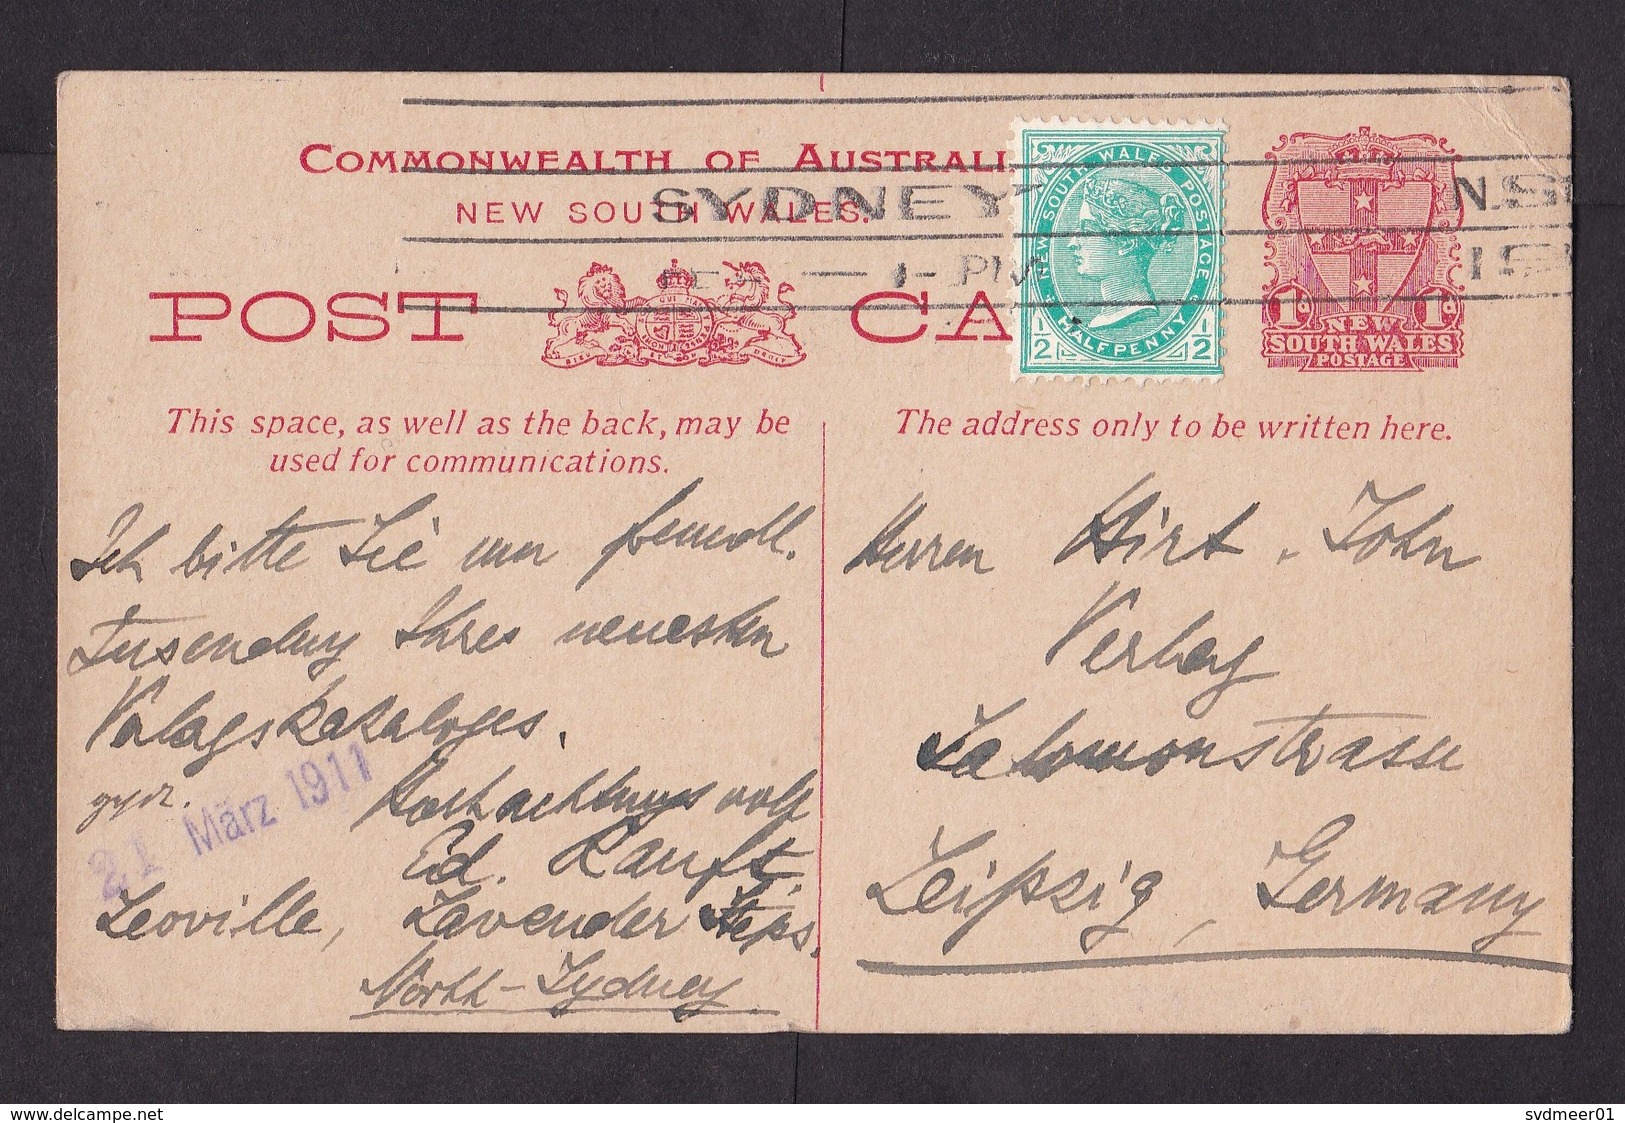 COMMONWEALTH OF AUSTRALI
NEW SOUTH WALES.
SYDNEY N.S
1- PM 191
POST CA
NEW SOUTH WALES POSTAGE
1/2 HALFPENNY 1/2
1d 1d
NEW
SOUTH WALES
POSTAGE
This space, as well as the back, may be
used for communications.
Ich bitte Sie um freundl.
Zusendung Ihres neuesten
Verlagskataloges.
21 März 1911
Hochachtungsvoll
Ed. Ranft
Leoville, Lavender Steps.
North-Sydney
The address only to be written here.
Herren Hirt. John
Verlag
Salomonstrasse
Leipzig, Germany
www.delcampe.net
svdmeer01